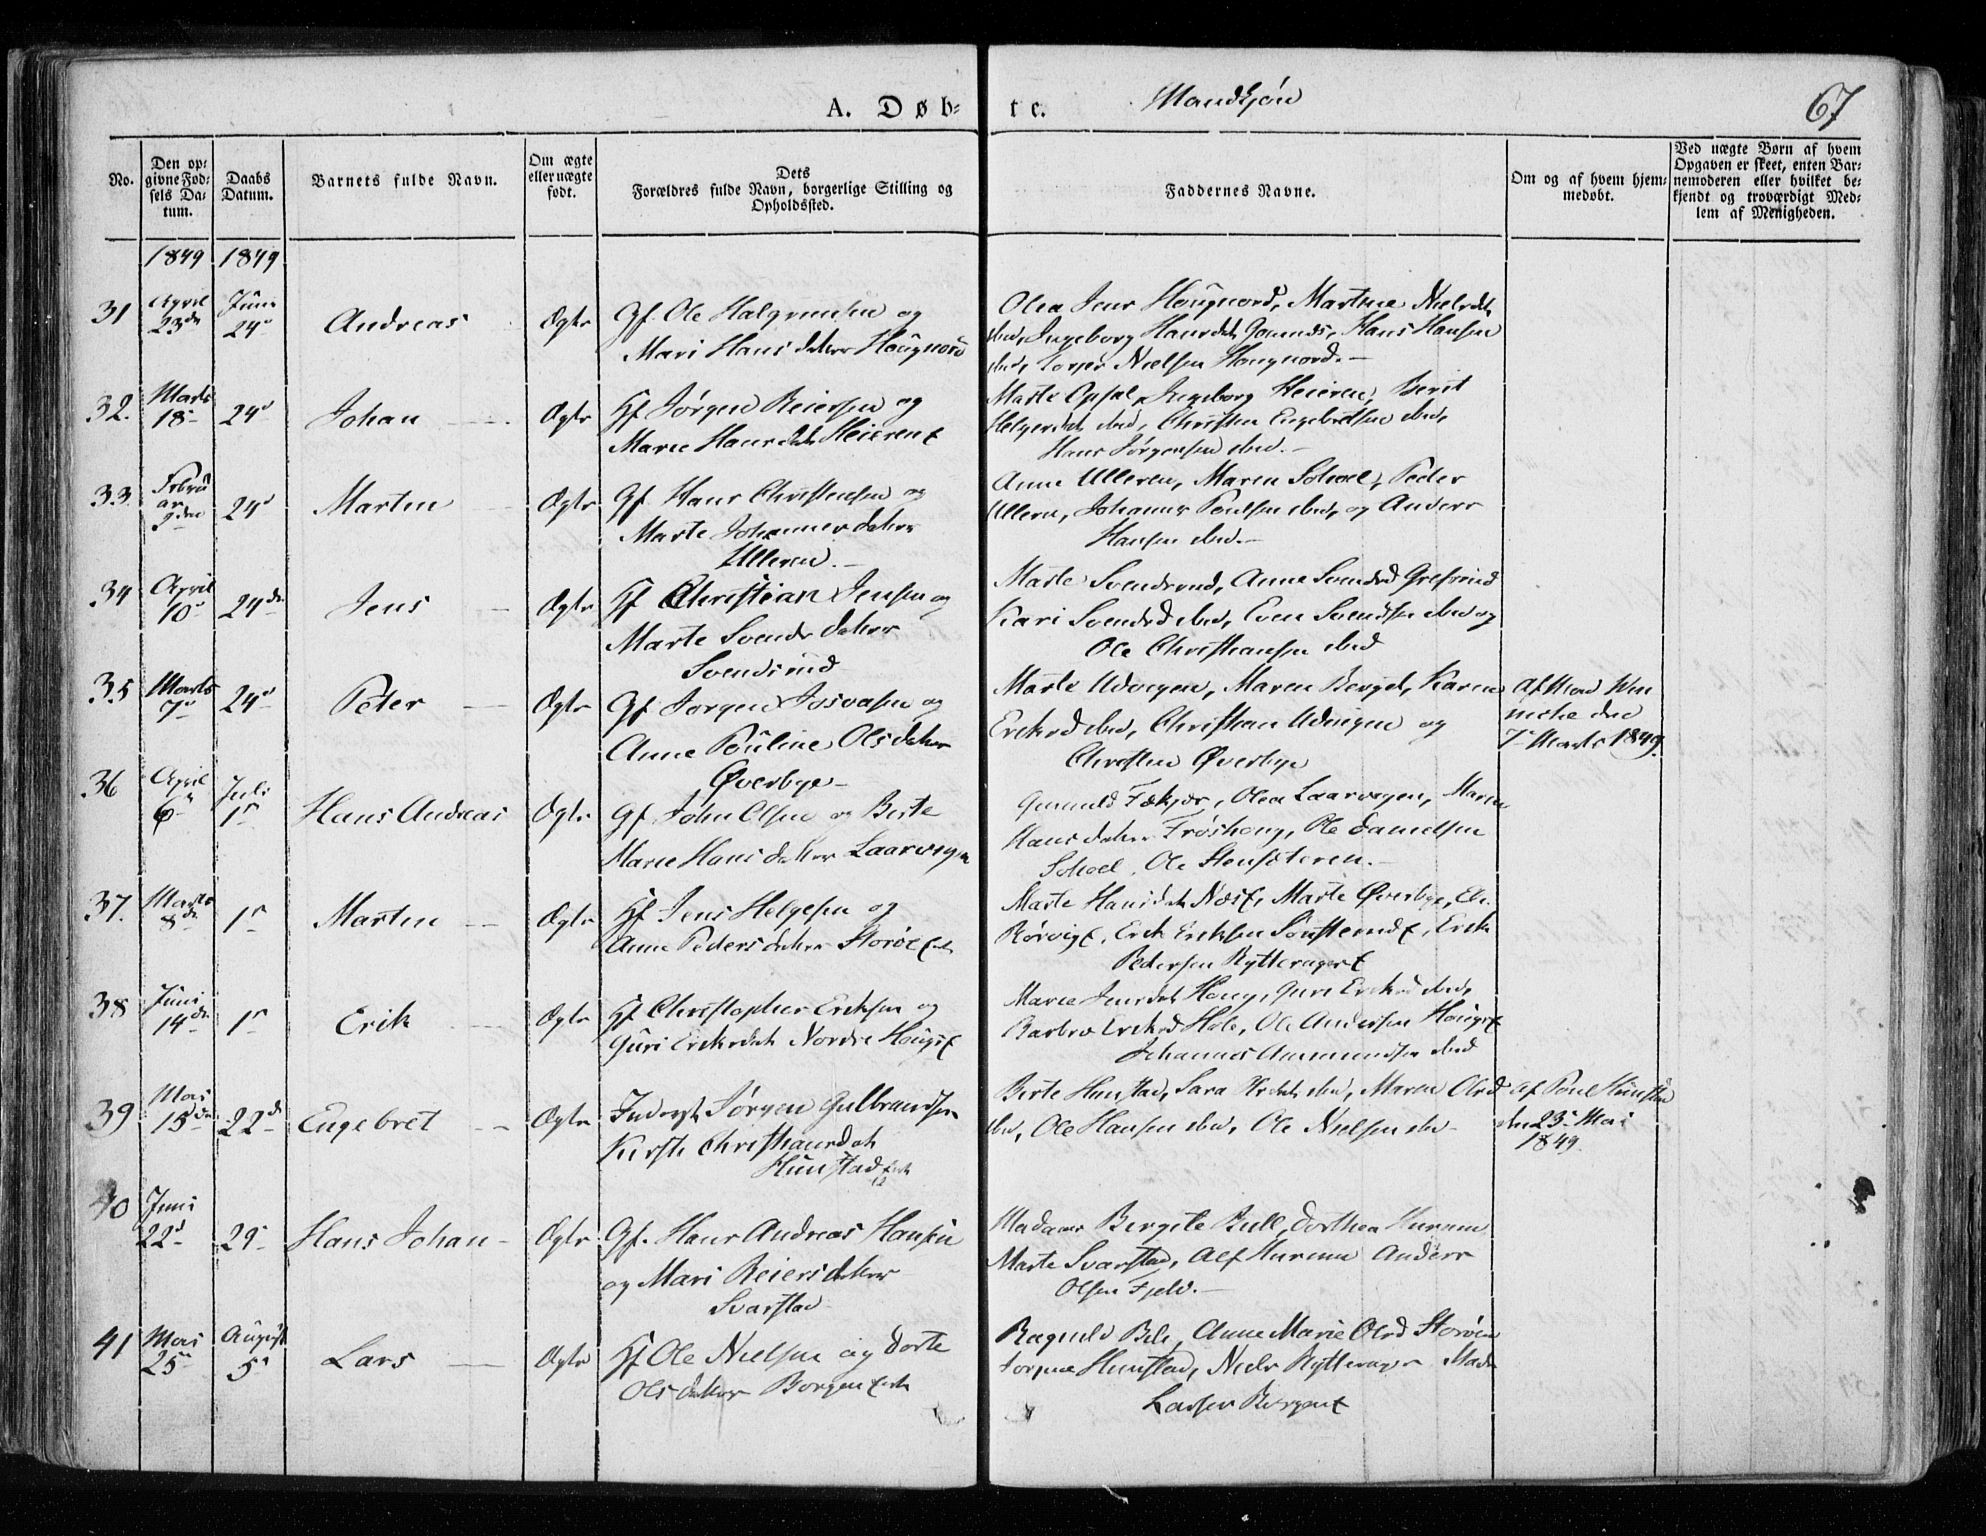 A. Døb- te. Mandkjøn 67
No.
Den op-
givne Fød-
sels Da-
tum.
Daabs
Datum.
Barnets fulde Navn.
Om ægte
eller uægte
født.
Dets
Forældres fulde Navn, borgerlige Stilling og
Opholdssted.
Faddernes Navne.
Om og af hvem hjem-
medøbt.
Ved uægte Børn af hvem
Opgaven er skeet, enten Bar-
nemoderen eller hvilket be-
kjendt og troværdigt Med-
lem af Menigheden.
1849 1849
31 April 23de Juni 24d Andreas Ægte Gf. Ole Halgrimsen og
Mari Hans datter Hougnord
Olea Jens Hougnord, Martine Nielsdt
ibid, Ingeborg Hansdat Hans Hansen
ibid, Nielsen Hougnord.
32. Marts 18 24d Johan Ægte Hf Jørgen Reiersen og
Marie Hansdat Heieren
Marte Opsal, Ingeborg Heieren, Berit
Helgesdt ibid, Christen Engebretsen ibid,
Hans Jørgensen ibid.
33. Februar 9den 24d Martin Ægte Gf. Hans Christensen og
Marte Johannes datter
Ulleren.
Anne Ulleren, Maren Sohoel, Peder
Ulleren, Johannes Poulsen ibid, og Anders
Hansen ibid.
34 April 10 24de Jens Ægte Hf Christian Jensen og
Marte Svends datter
Svendsrud
Marte Svendsrud, Anne Svendsd Grefsrud
Kari Svendsd ibid, Even Svendsen ibid og
Ole Christiansen ibid
35 Marts 7d 24d Peter Ægte Gf. Jørgen Josvasen og
Anne Pouline Ols datter
Øverbye
Marte Udvigen, Maren Berget, Karen
Eriksd ibid, Christian Udvigen og
Christen Øverbye
Af Mad
den
7 Marts 1849.
36 April 6 Juli 1 Hans Andreas Ægte Gf. John Olsen og Birte
Marie Hans datter Laarvigen
Gunnild Fækjær, Olea Laarvigen, Maren
Hans datter Frøshoug, Ole Danielsen
Sohoel, Ole Stensæteren.
37. Marts 8de 1 Martin Ægte Hf. Jens Helgesen og
Anne Peders datter Storøe
Marte Hansdat Næs, Marte Øverbye,
Rørvig, Erik Eriksen Sønsterud, Erik
Pedersen Rytterager
38 Juni 14de 1 Erik Ægte Hf Christopher Eriksen og
Guri Eriksdat Nordre Houg
Maree Jensdat Houg, Guri Eriksd ibid,
Barbro Eriksd Hole, Ole Andersen Houg
Johannes Ammundsen ibid
39 Mai 15de 22d Engebret Ægte Inderst Jørgen Gulbrandsen
Kirsti Christiansdat
Hunstad
Birte Hunstad, Sara ibid, Maren Olsd
ibid, Ole Hansen ibid, Ole Nielsen ibid
Af Poul Hunstad
den 23 Mai
1849.
40 Juni 22d 29 Hans Johan Ægte Gf. Hans Andreas Hansen
og Mari Reiers datter
Svarstad
Madame Birgite Bull, Dorthea Hurum
Marte Svarstad, Alf Hurum Anders
Olsen Fjeld.
41 Mai 25 August 5 Lars Ægte Hf Ole Nielsen og Dorte
Ols datter Borgen
Ragnild Bili, Anne Marie Olsd Storøen
Hunstad, Niels Rytterager
Larsen Borgen